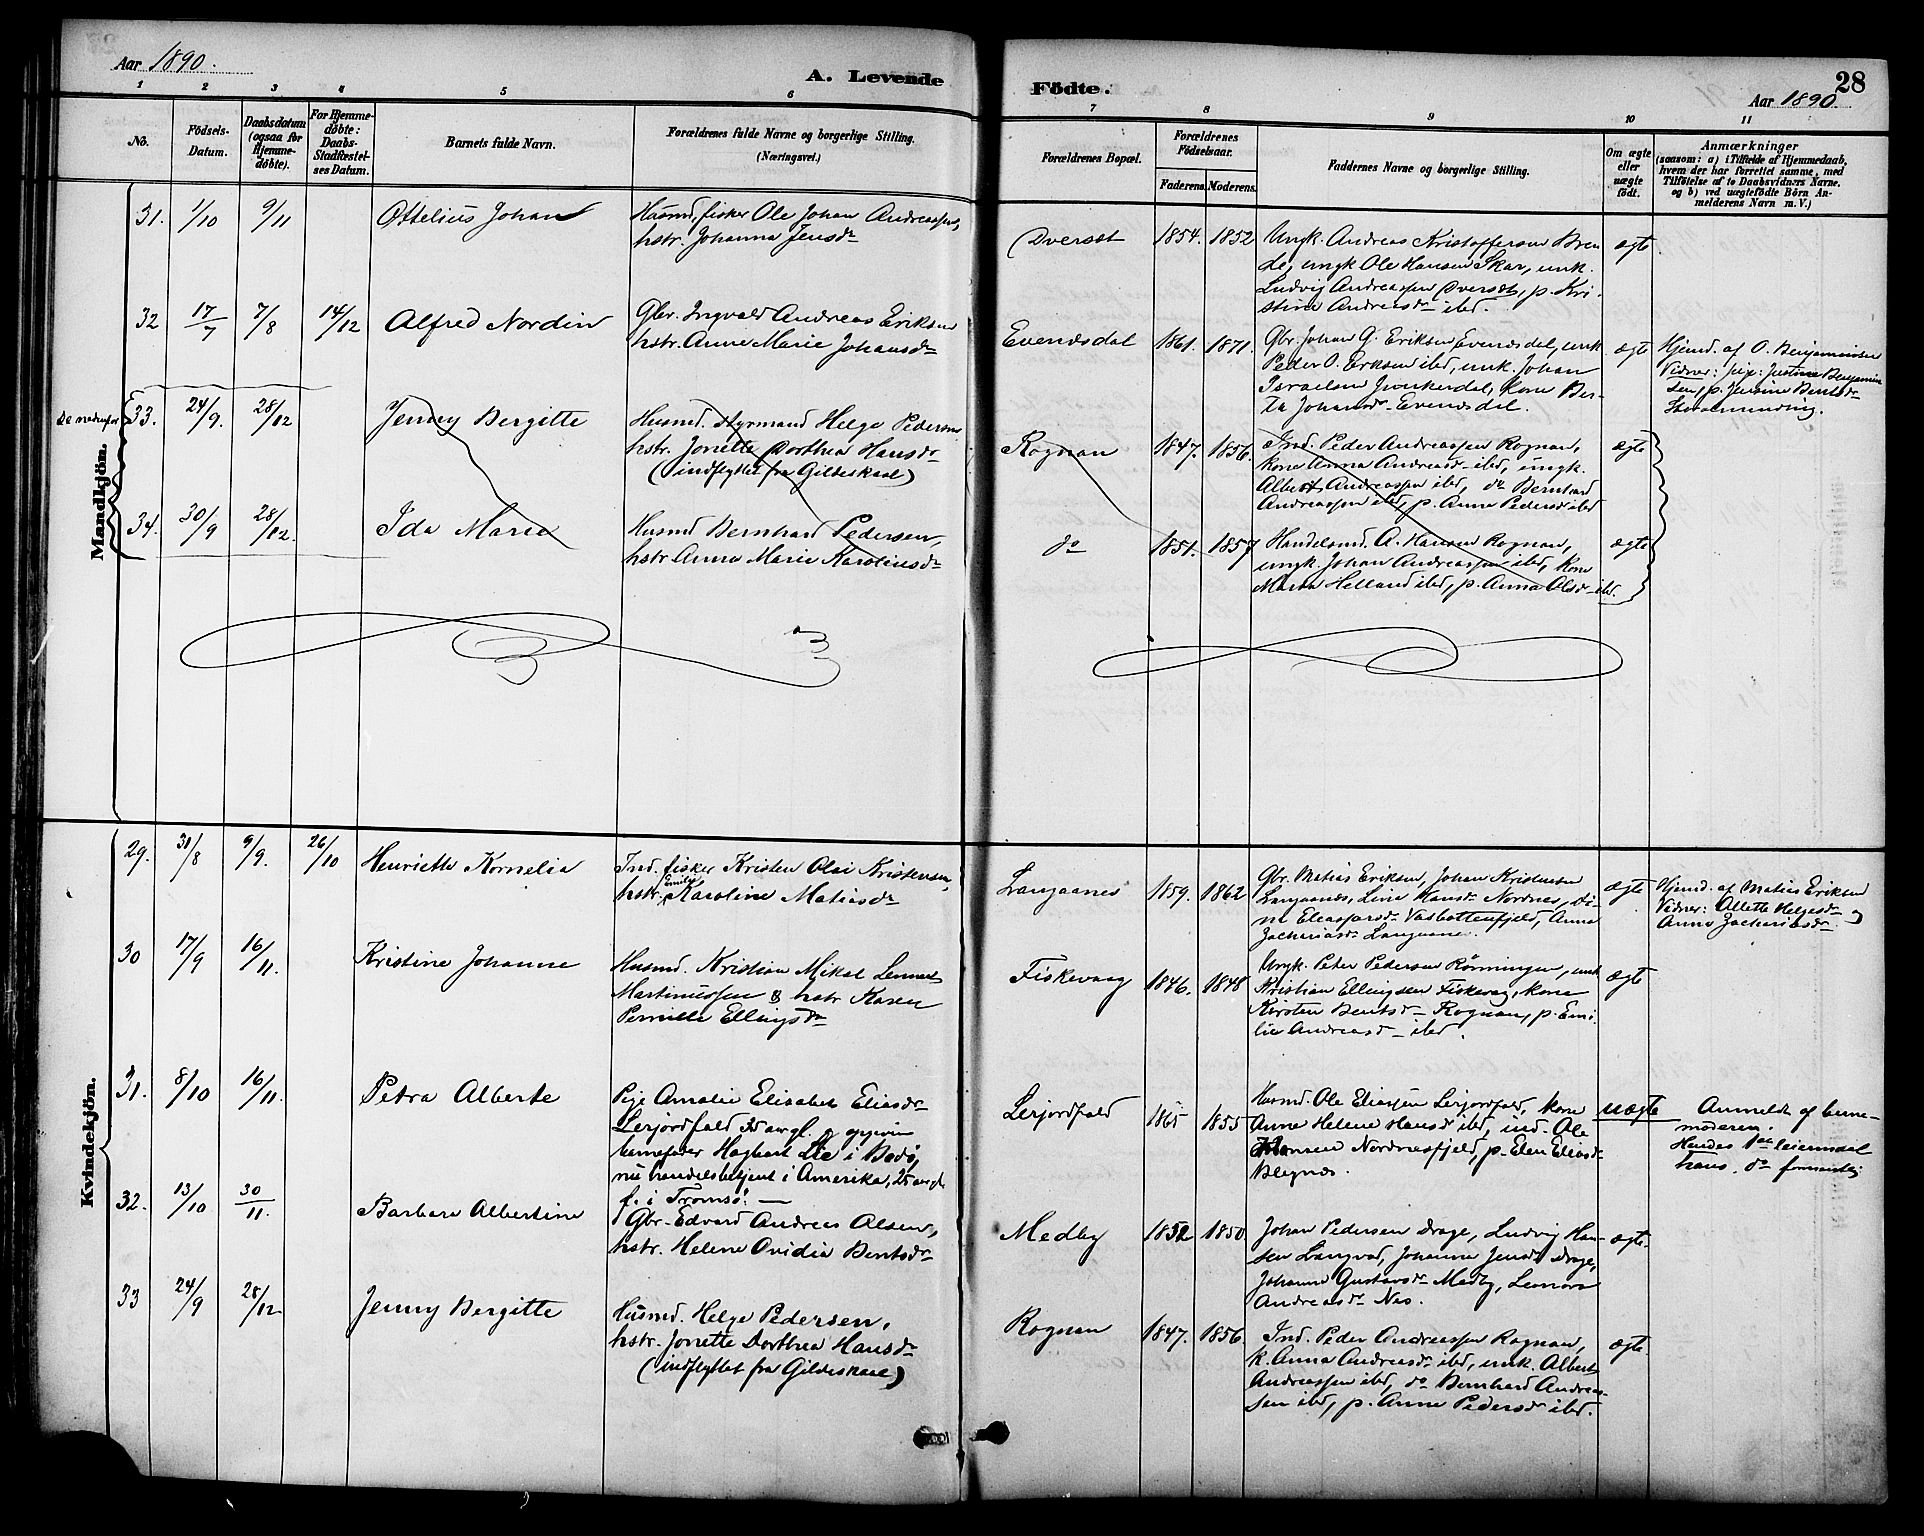 Aar 1890.
A. Levende
1 2 3 4 5 6
No.
Födsels-
Datum.
Daabsdatum
(ogsaa for
Hjemme-
döbte).
For Hjemme-
döbte:
Daabs-
Stadfæstel-
ses Datum.
Barnets fulde Navn.
Forældrenes fulde Navne og borgerlige Stilling.
(Næringsvei.)
Mandkjön.
31. 1/10 9/11 Ottelius Johan
Husmd, fisker Ole Johan Andreassen,
hstr. Johanna Jensdr
32 17/7 7/8 14/12 Alfred Nordin
Gbr. Ingvald Andreas Eriksen
hstr. Anne Marie Johansdr
De nedenfor
33. 24/9. 28/12 Jenny Bergitte
Husmd. Styrmand Helge Pedersen
hstr. Jonette Dorthea Hansdr
(indflyttet fra Gildeskaal)
34. 30/9 28/12. Ida Marie
Husmd Bernhard Pedersen,
hstr Anne Marie Karolinsdr
Kvindekjön.
29. 31/8 9/9. 26/10 Henriette Kornelia
Ind. fisker Kristen Olai Kristensen,
hstr. Emilie Karoline Matiasdr
30 17/9 16/11. Kristine Johanne
Husmd. Kristian Mikal Lennert
Martinussen & hstr Karen
Pernille Ellingsdr
31. 8/10 16/11. Petra Alberte
Pige Amalie Elisabet Eliasdr
Lerjordfald 35 av gl. & opgiven
barnefader Hagbart Lie i Bodø,
nu handelsbetjent i Amerika, 25 av gl
f. i Tromsø. —
32. 13/10 30/11. Barbara Albertine
Gbr. Edvard Andreas Olsen,
hstr. Helene Ovidia Bentsdr
33 24/9 28/12. Jenny Bergitte
Husmd. Helge Pedersen,
hstr. Jonette Dorthea Hansdr
(indflyttet fra Gildeskaal)
Födte.
28
Aar 1890.
7 8 9 10 11
Forældrenes Bopæl.
Forældrenes
Födselsaar.
Faderens. Moderens.
Faddernes Navne og borgerlige Stilling.
Om ægte
eller
uægte
födt.
Anmærkninger
(saasom: a) i Tilfælde af Hjemmedaab,
hvem der har forrettet samme, med
Tilföielse af to Daabsvidners Navne.
og b) ved uægtefödte Börn An-
melderens Navn m. V.)
Dverset 1854. 1852 Ungk. Andreas Kristoffersen Bren- ægte
de, ungk Ole Hansen Skar, unk.
Ludvig Andreassen Dverset, p. Kri-
stine Andreasdr ibd.
Evensdal 1861. 1871. Gbr. Johan G. Eriksen Evensdal, unk ægte
Peder O. Eriksen ibd, unk. Johan
Israelsen Junkerdal, kone Ber-
ta Johansdr Evensdal.
Hjemd. af O. Benjaminsen
Vidner: pige: Justine Benjamin
sen, p. Jensine Bentsdr
Storalmending.
Rognan 1847. 1856. Ind. Peder Andreassen Rognan, ægte
kone Anna Andreasdr ibd, ungk.
Albert Andreassen ibd, do Bernhard
Andreassen ibd, p. Anne Pedersd ibd
do 1851. 1857 Handelsmd. A. Hansen Rognan, ægte
ungk. Johan Andreassen ibd, kone
Marta Helland ibd, p. Anna Olsdr ibd.
Langaanes 1859. 1862 Gbr. Matias Eriksen, Johan Kristensen ægte
Langaanes, Line Hansdr Nordnes, Si-
ne Eleasarsdr Vasbottenfjeld, Anna
Zachariasdr Langaanes.
Hjemd. af Matias Eriksen
Vidner: Ollette Helgesdr &
Anna Zachariasdr
Fiskevaag 1846. 1848 Ungk. Peter Pedersen Rönningen, unk ægte
Kristian Ellingsen Fiskevag, kone
Kirsten Bentsdr Rognan, p. Emi-
lie Andreasdr ibd.
Lerjordfald 1865 1855 Husmd. Ole Eliassen Lerjordfald, kone uægte
Anne Helene Hansdr ibd, ind. Ole
Hansen Nordnesfjeld, p. Elen Eliasdr
Blegnæs.
Anmeldt af barne-
moderen.
Hendes 1ste leiermaal
hans do formentlig
Medby 1852 1850 Johan Pedersen Drage, Ludvig Han- ægte.
sen Langvad, Johanna Jensdr Drage,
Johanna Gustavsdr Medby, Lenora
Andreasdr Nes.
Rognan 1847. 1856. Ind. Peder Andreassen Rognan, ægte.
k. Anna Andreasdr ibd, unk. Albert
Andreassen ibd, do Bernhard Andreas-
sen ibd, p. Anne Pedersdr ibd.